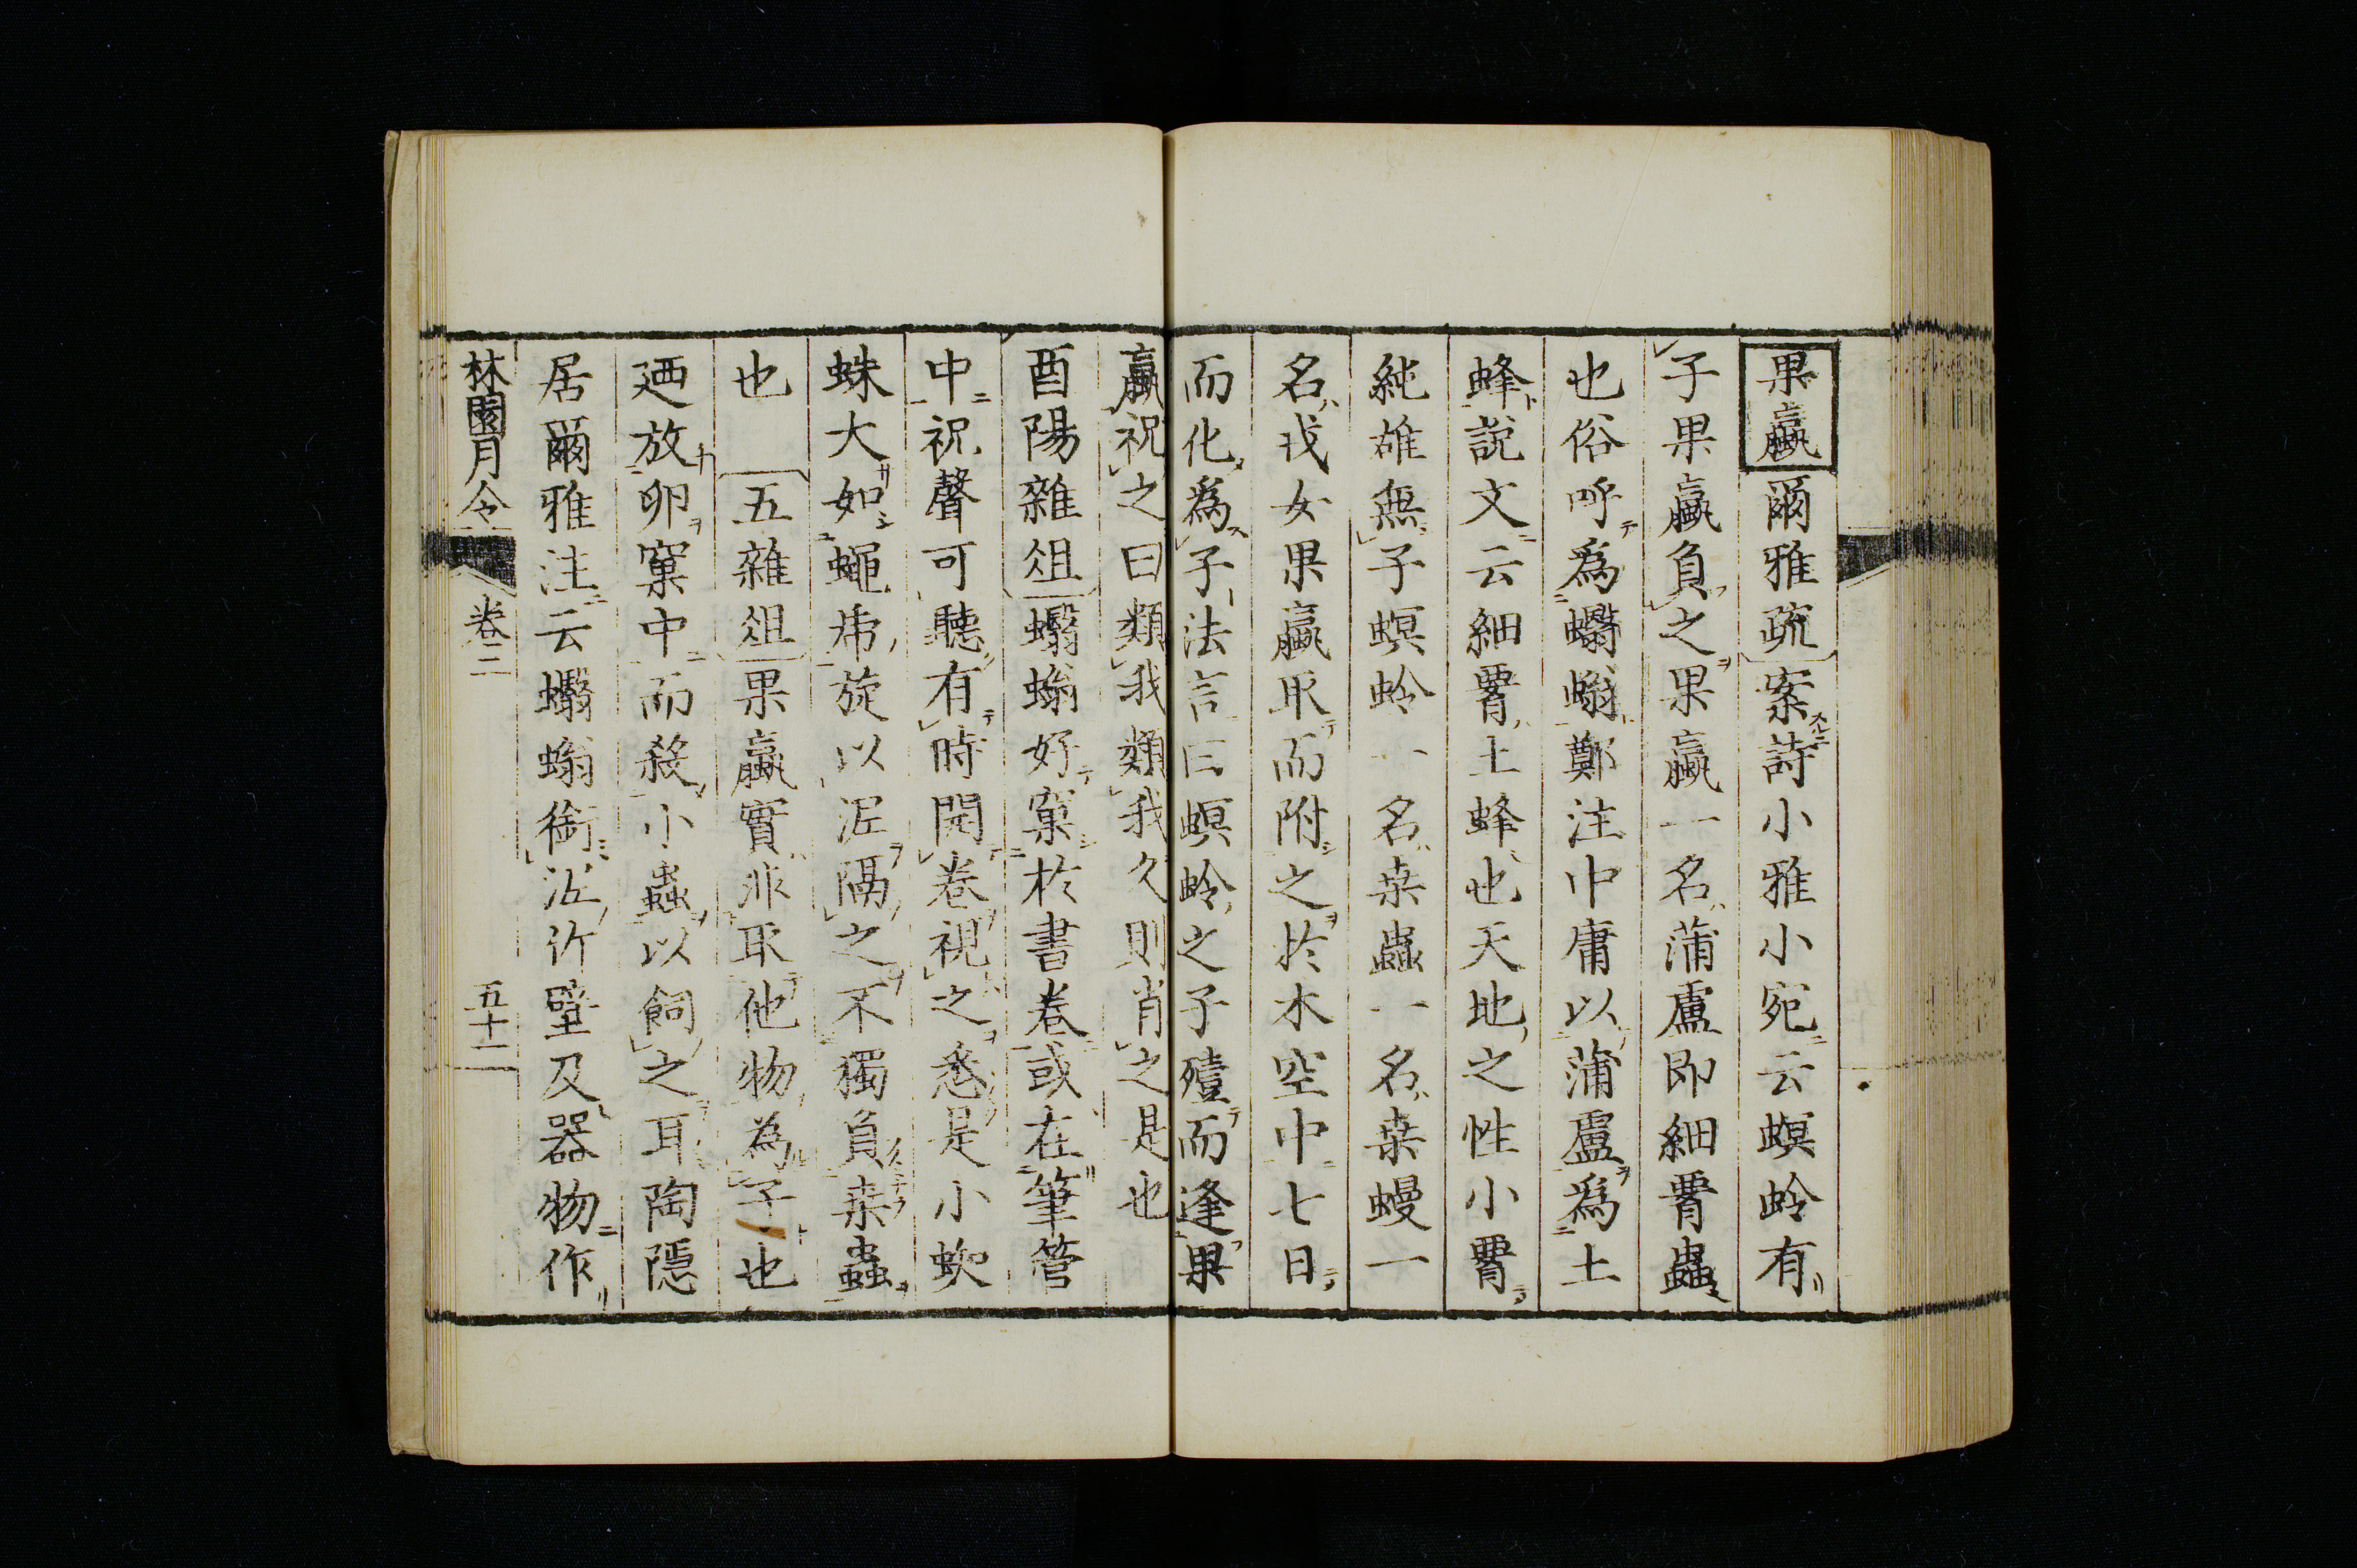 果蠃爾雅疏案詩小雅小宛云螟蛉有
子果蠃負之果蠃一名蒲盧即細腰蟲
也俗呼爲蠮螉鄭注中庸以蒲盧爲土
蜂說文云細腰土蜂也天地之性小腰
純雄無子螟蛉一名桒蟲一名桒蟃一
名戎女果蠃取而附之於木空中七日
而化爲子法言曰螟蛉之子殪而逢果
蠃祝之曰類我類我久則肖之是也
酉陽雜俎蠮螉好窠於書卷或在筆管
中祝聲可聽有時開卷視之悉是小蜘
蛛大如蠅虎旋以泥隔之不獨負桒蟲
也 五雜俎果蠃實非取他物為子也
廼放卵窠中而殺小蟲以飼之耳陶隱
居爾雅注云蠮螉銜泥竹壁及器物作
林園月令 卷三 五十一